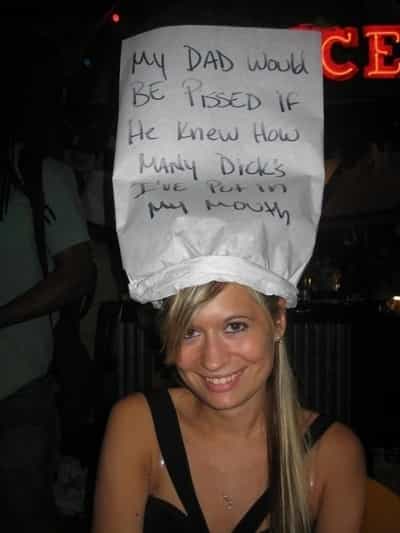 MY DAD Would
BE PISSED IF
He Knew How
MANY DICK'S
I'VE PUT IN
MY MOUTH
CE